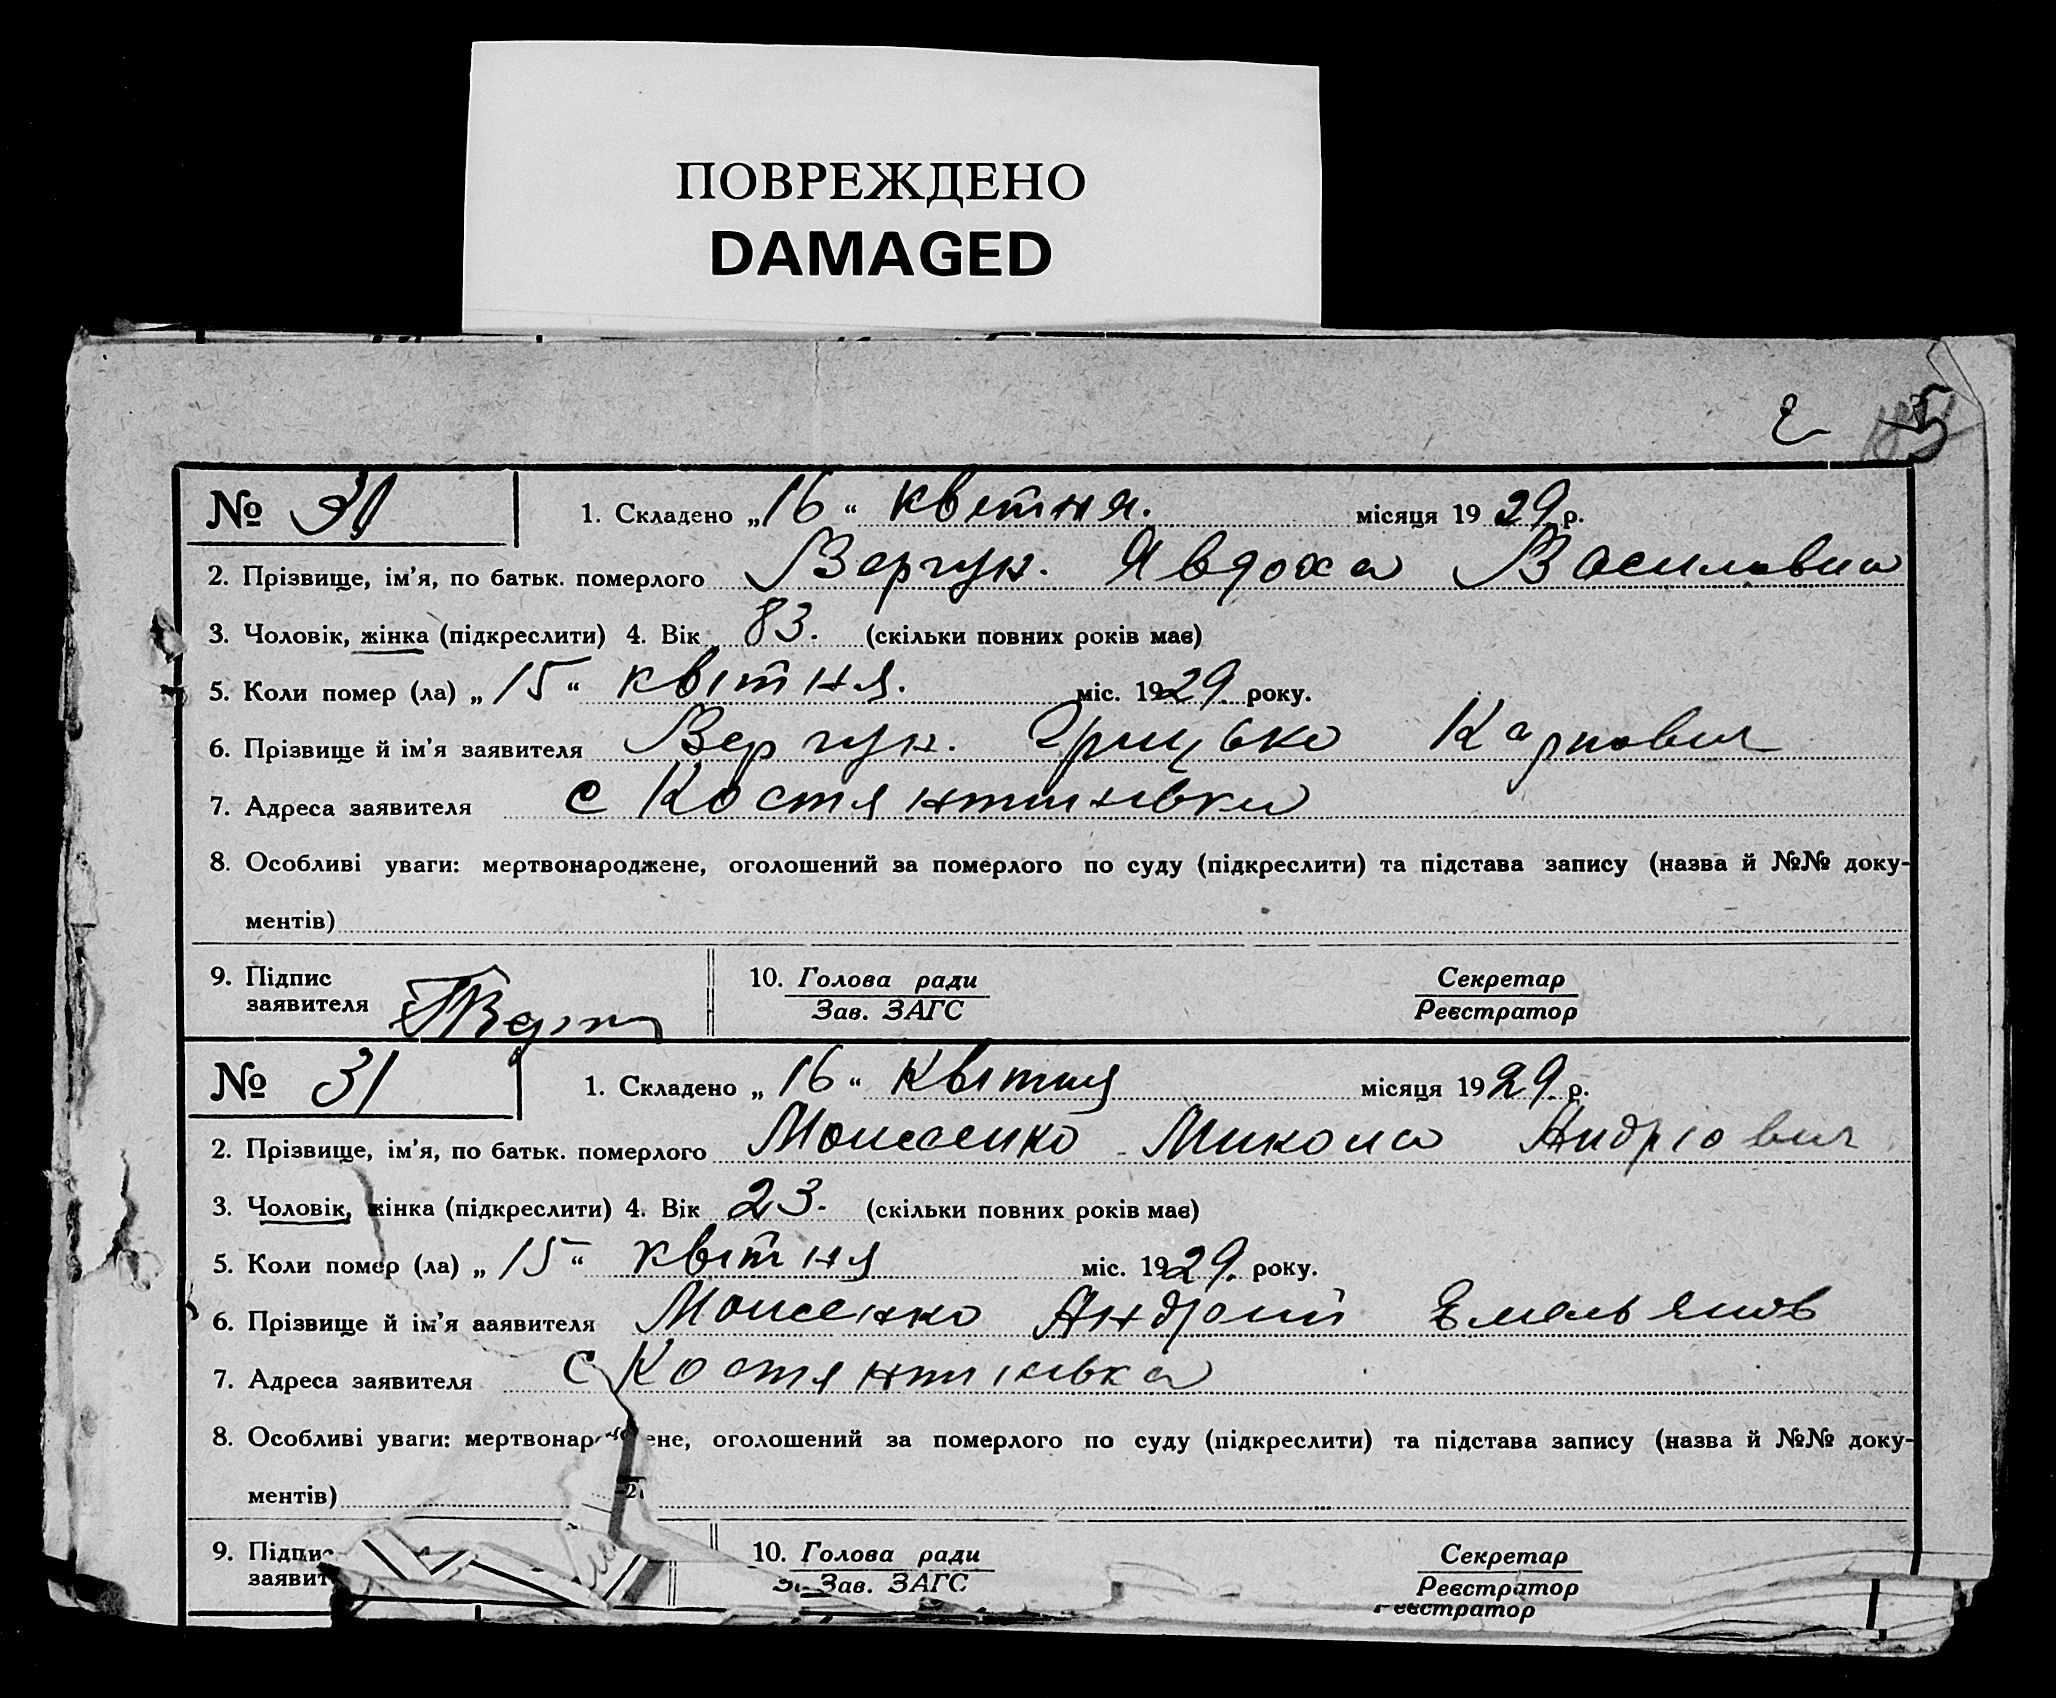 ПОВРЕЖДЕНО
DAMAGED
2
№ 30 1. Складено „16“ квітня. місяця 1929 р.
2. Прізвище, ім’я, по батьк. померлого Вергун. Явдоха Василовна
3. Чоловік, жінка (підкреслити) 4. Вік 83. (скільки повних років має)
5. Коли помер (ла) „15“ квітня. міс. 1929. року.
6. Прізвище й ім’я заявителя Вергун. Грицько Карпович
7. Адреса заявителя с Костянтинівки
8. Особливі уваги: мертвонароджене, оголошений за померлого по суду (підкреслити) та підстава запису (назва й №№ доку-
ментів)
9. Підпис
заявителя
10. Голова ради
Зав. ЗАГС
Секретар
Реєстратор
№ 31 1. Складено „16“ Квітня місяця 1929. р.
2. Прізвище, ім’я, по батьк. померлого Моисеенко Микола Андріович
3. Чоловік, жінка (підкреслити) 4. Вік 23. (скільки повних років має)
5. Коли помер (ла) „15“ квітня міс. 1929. року.
6. Прізвище й ім’я ааявителя Моисенко Андрій Емельянов
7. Адреса заявителя с Костянтинівка
8. Особливі уваги: мертвонар ене, оголошений за померлого по суду (підкреслити) та підстава запису (назва й №№ доку-
ментів)
9. Підпис
заявит
10. Голова ради
Зав. ЗАГС
Секретар
Реєстратор
еєстратор